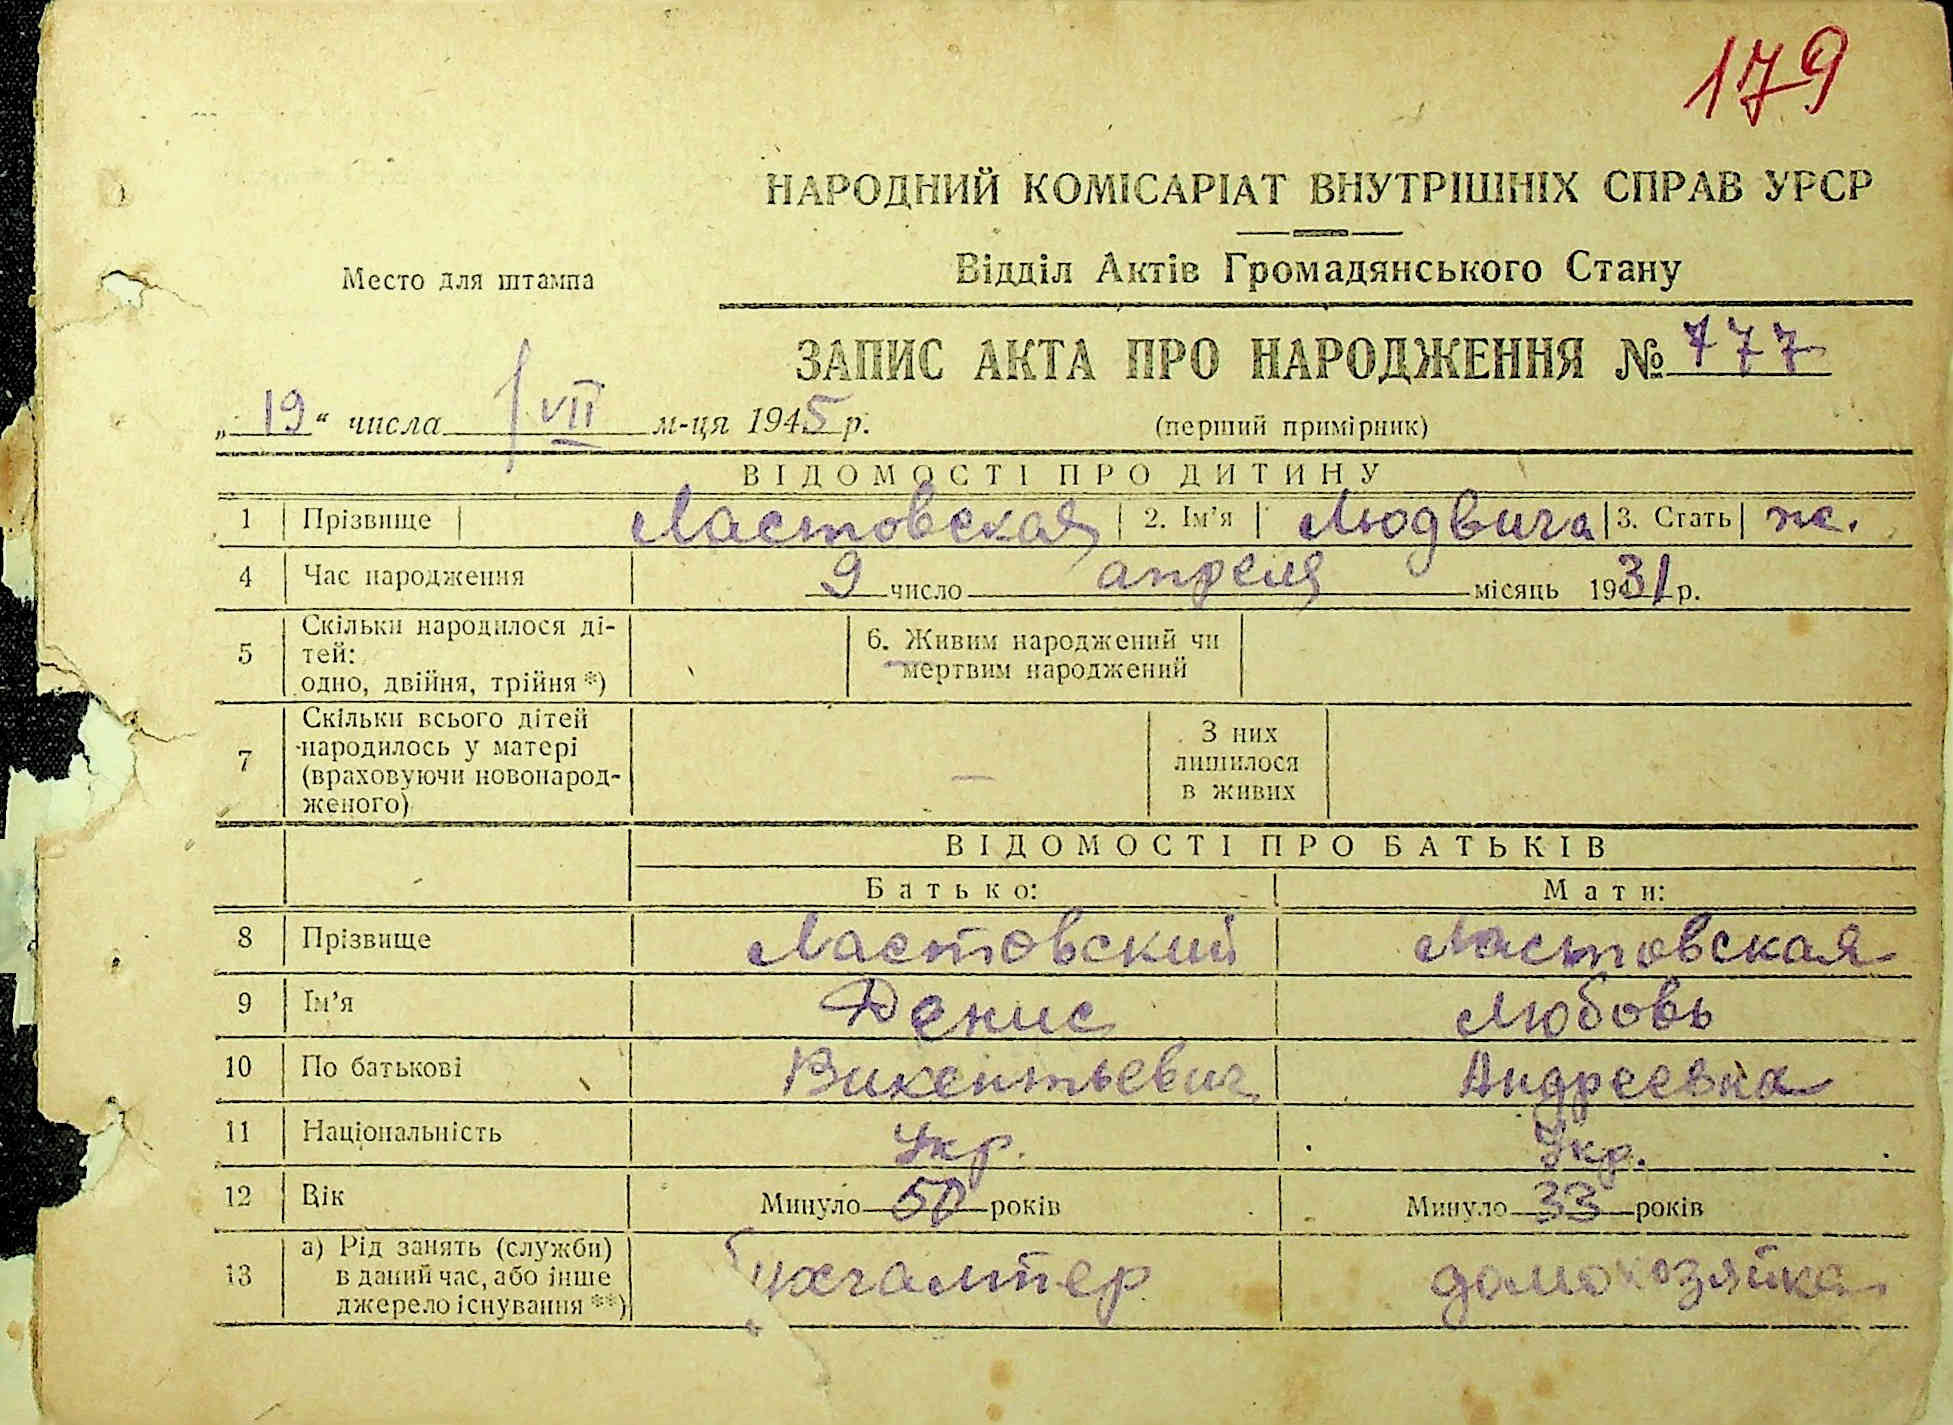 179
НАРОДНИЙ КОМІСАРІАТ ВНУТРІШНІХ СПРАВ УРСР
Відділ Актів Громадянського Стану
Место для штампа
ЗАПИС АКТА ПРО НАРОДЖЕННЯ № 777
„19“ числа VII м-ця 1945 р. (перший примірник)
ВІДОМОСТІ ПРО ДИТИНУ
1 Прізвище Ластовская 2. Ім’я Людвига 3. Стать ж.
4 Час народження 9 число апреля місяць 1931 р.
5 Скільки народилося ді-
тей:
одно, двійня, трійня *)
6. Живим народжений чи
мертвим народжений
7 Скільки всього дітей
народилось у матері
(враховуючи новонарод-
женого) —
З них
лишилося
в живих
ВІДОМОСТІ ПРО БАТЬКІВ
Батько: Мати:
8 Прізвище Ластовский Ластовская
9 Ім’я Денис Любовь
10 По батькові Викентьевич Андреевна
11 Національність Укр. Укр.
12 Вік Минуло 50 років Минуло 33 років
13 а) Рід занять (служби)
в даний час, або інше
джерело існування **)
бухгалтер домохозяйка